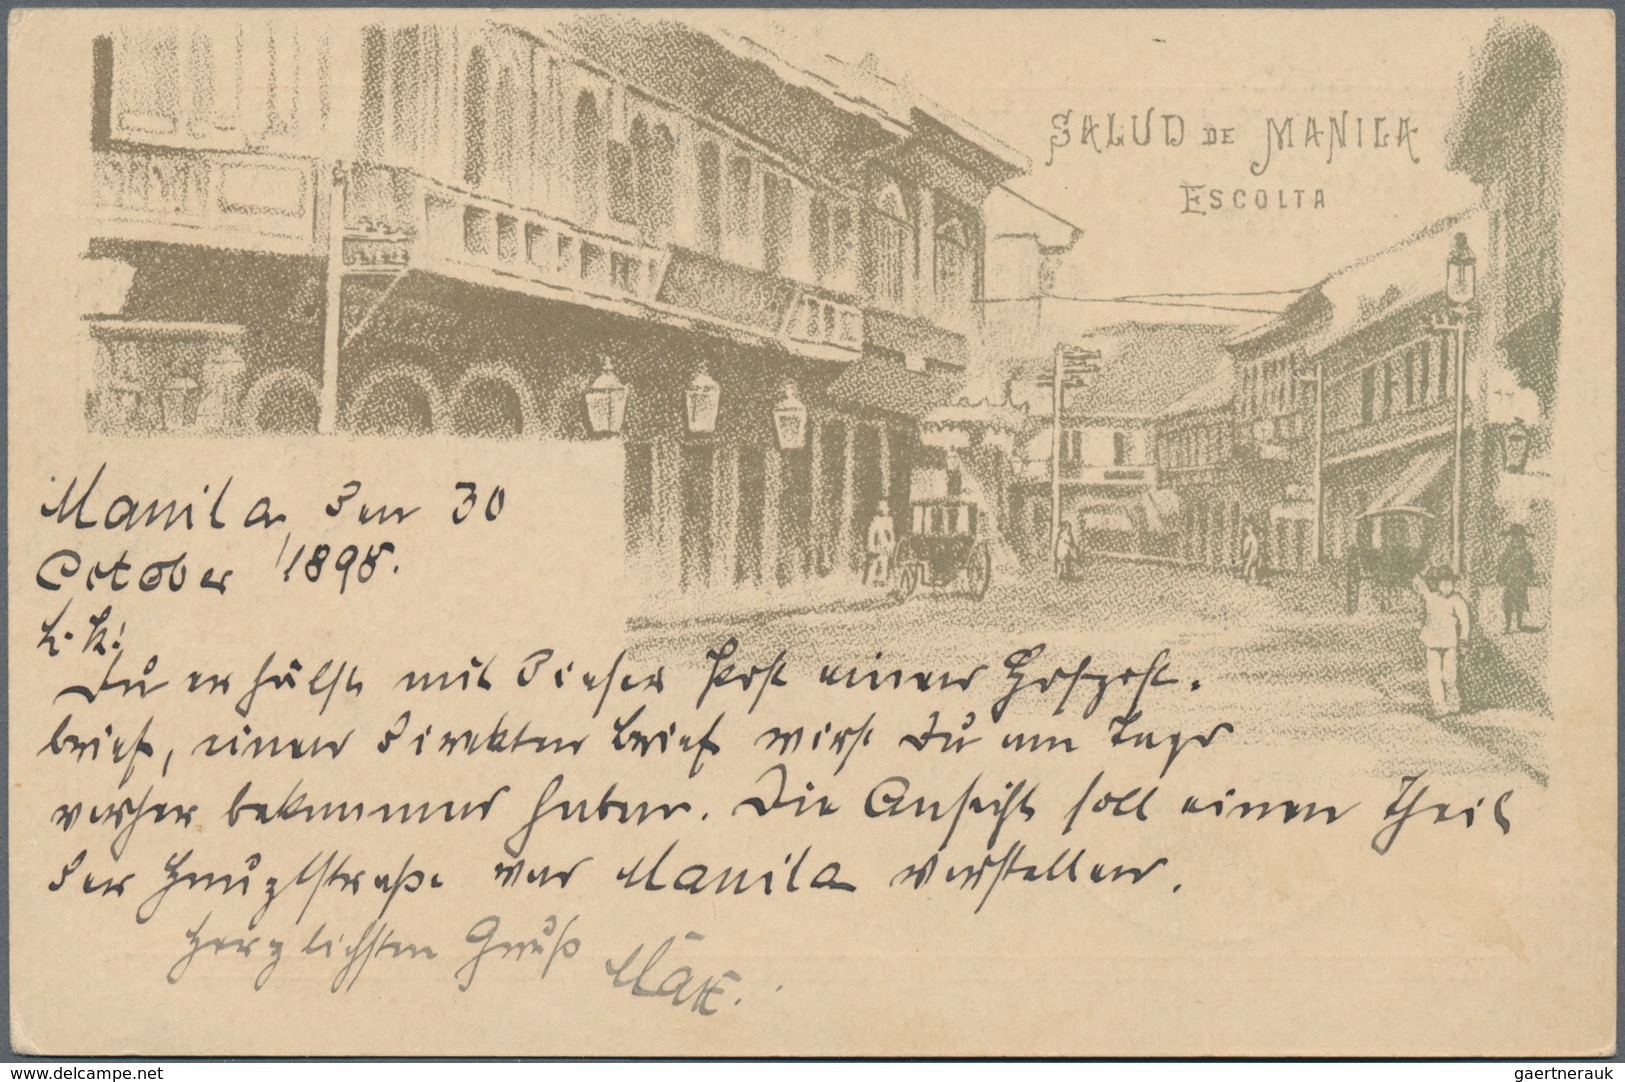 SALUD DE MANILA
ESCOLTA
Manila, den 30
October 1898.
L. K!
Du erhälst mit dieser Post einen Hofpost-
brief, einen direkten Brief wirst Du am Tage
vorher bekommen haben. Die Ansicht soll einen Theil
der Hauptstraße von Manila vorstellen.
Herzlichsten Gruß
www.delcampe.net
gaertnerauk